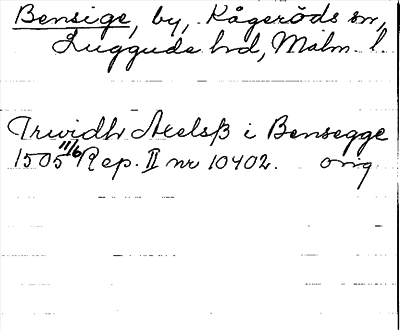 Bensige, by, Kågeröds sn,
Luggude hd, Malm. l.
Trwidh Axelsß i Bensegge
1505 11/6 Rep. II nr 10402. orig.